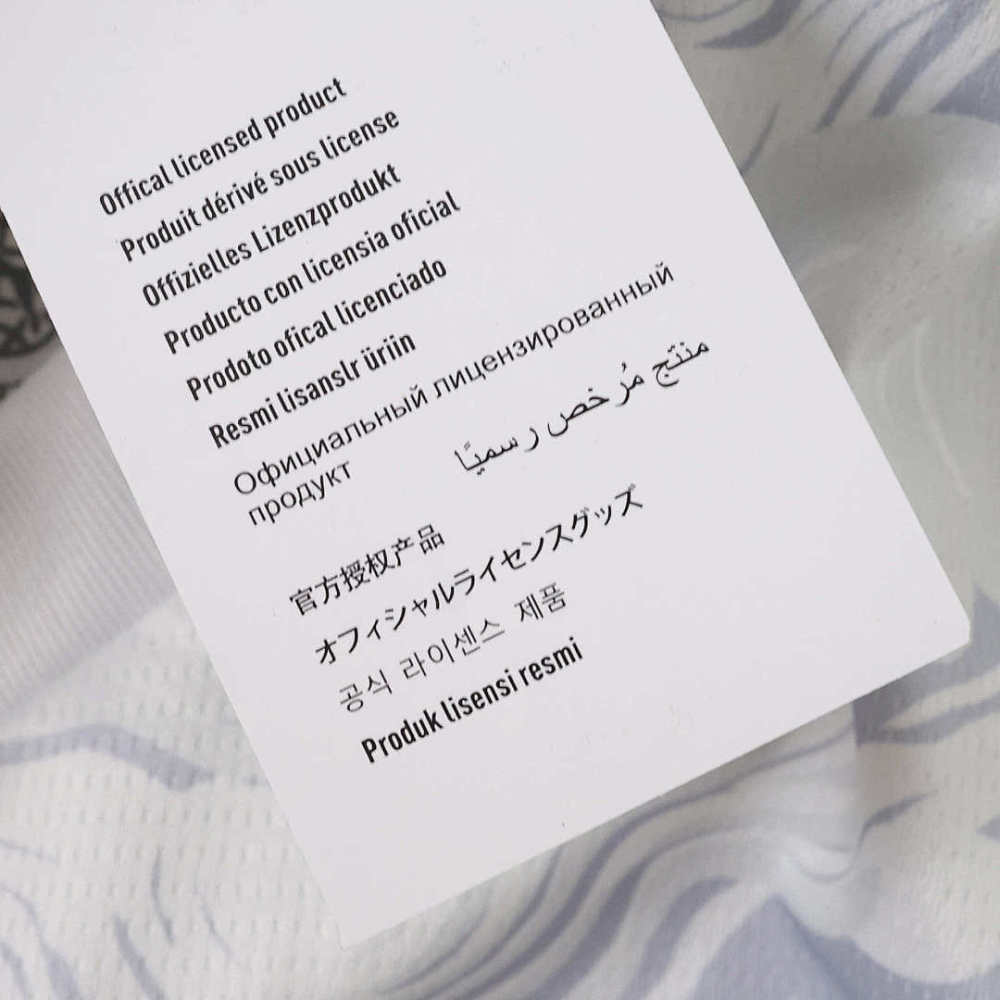 Offical licensed product
Produit dérivé sous license
Offizielles Lizenzprodukt
Producto con licensia oficial
Prodoto ofical licenciado
Resmi lisanslr üriin
Официальный лицензированный
продукт
منتج مُرخص رسميًا
官方授权产品
オフィシャルライセンスグッズ
공식 라이센스 제품
Produk lisensi resmi